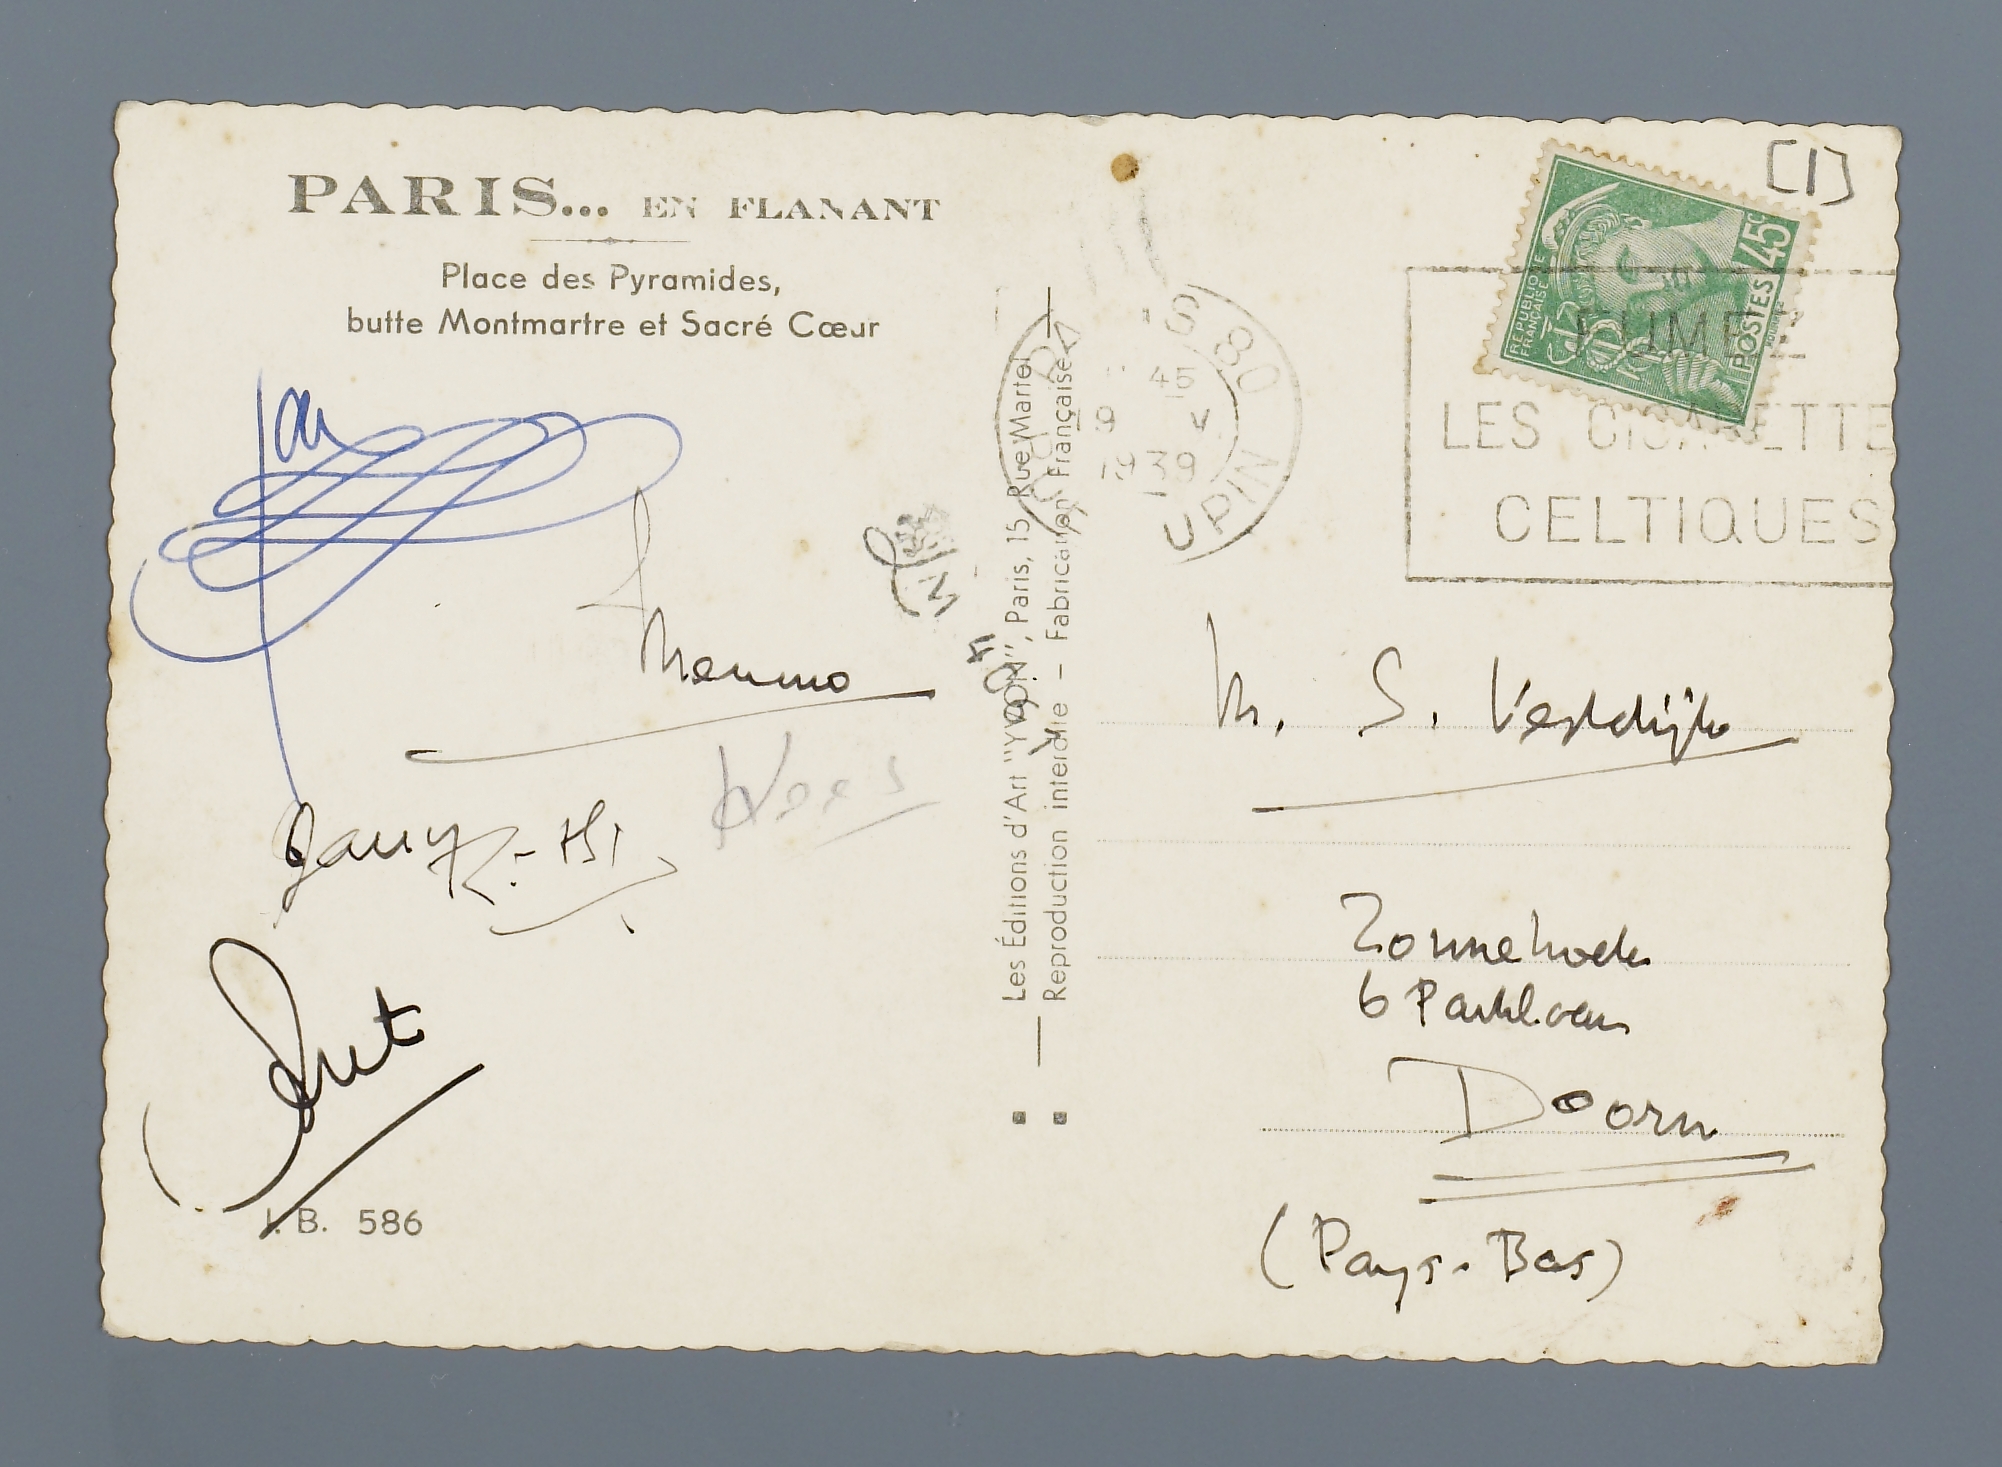 PARIS... EN FLANANT
Place des Pyramides,
butte Montmartre et Sacré Cœur
Jan
Menno
Kees
I.B. 586
Les Éditions d'Art "YVON", Paris, 15 Rue Martel
Reproduction interdite – Fabrication Française
[1]
REPUBLIQUE
FRANÇAISE
POSTES 45c
45
19 V
1939
UPIN
FUMEZ
LES CIGARETTE
CELTIQUES
M. S. Vestdijk
Zonnehoek
6 Parklaan
Doorn
(Pays-Bas)